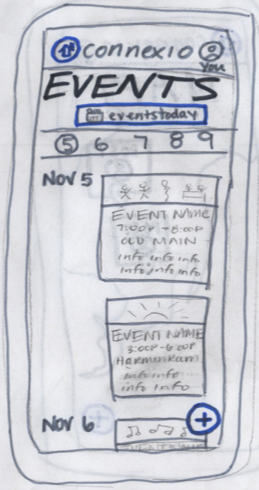 connexio
You
EVENTS
eventstoday
5 6 7 8 9
Nov 5
EVENT NAME
7:00P - 8:00P
OLD MAIN
info info info
info info info
EVENT NAME
3:00P - 6:00P
info info
info info
Nov 6
+